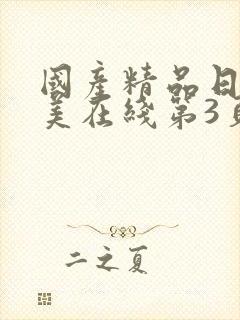 國產精品日
美在綫第3
二之夏